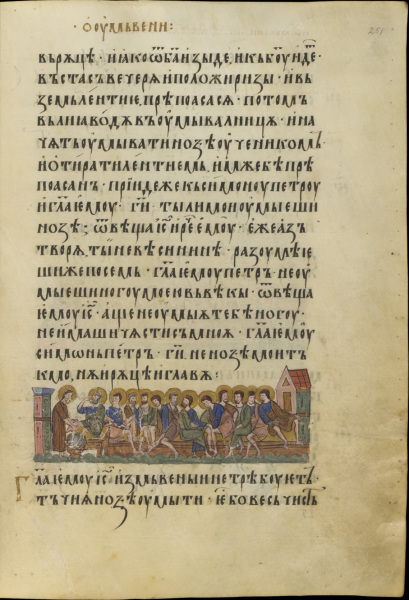 · ѻ оумъвени :
251
върѫцѣ · и ꙗко ѿ б҃а изыде, и къ б҃оу идеⷮ ·
въста съ вечерѧ и положи ризы · и въ
земь лентие, прѣпоꙗсасѧ · потомъ
вълиꙗ водѫ въ оумывалницѫ · и на
чѧтъ оумывати нозѣ оученикомъ
и ѡтирати лентиемъ, имже бѣ прѣ
поꙗсанъ · прїиде же къ симоноу петроу
и гл҃а емоу · г҃и ты ли мои оумыеши
нозѣ ; ѿвѣща і҃с и рⷱ҇е емоу · еже азъ
творѧ, ты не вѣси нн҃ѣ · разоумѣе
ши же по семь · гл҃а емоу петръ · не оу
мыеши ногоу моею въ вѣкы · ѿвѣща
емоу і҃с · аще не оумыѫ тебе ногоу ·
не имаши чѧсти съ мноѫ · гл҃а емоу
симѡнь петръ · г҃и, не нозѣ мои тъ
кмо, нѫ и рѫцѣ и главѫ :
Гл҃а емоу і҃с · измъвеныи не трѣбоуетъ
тъчиѧ нозѣ оумыти · е бо весь чистъ